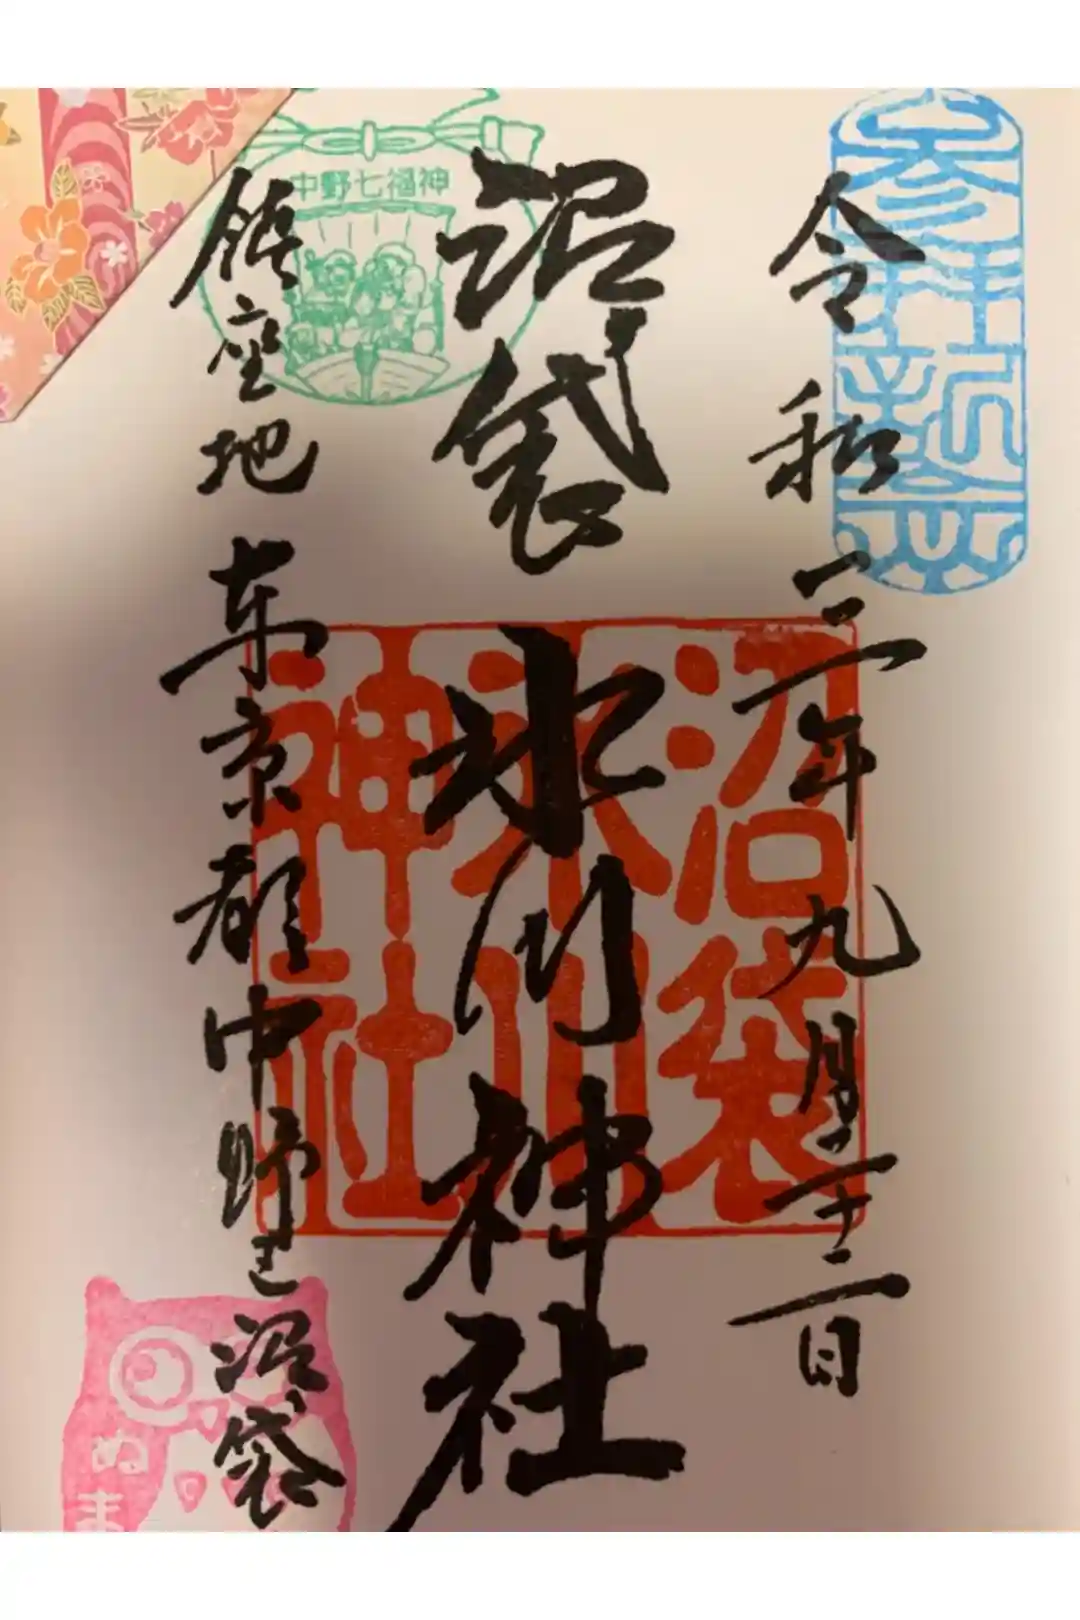 令和三年九月二十二日
沼袋氷川神社
鎮座地 東京都中野区沼袋
中野七福神
沼袋
氷川
神社
ぬま